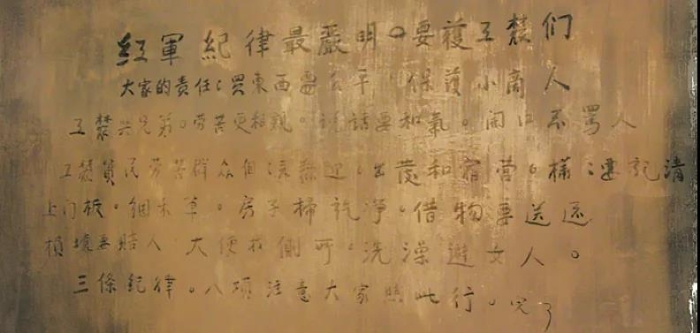 红軍紀律最嚴明。要護工農们
大家的責任：買東西要公平。保護小商人
工農共兄弟。劳苦更相親。說話要和氣。開口不罵人
工農貧民劳苦群众但 出發和宿营。樣：要記清
上门板。綑禾草。房子掃乾净。借物要送还
損壞要賠人 大便找側所。洗澡避女人。
三條紀律。八項注意大家照此行。完了